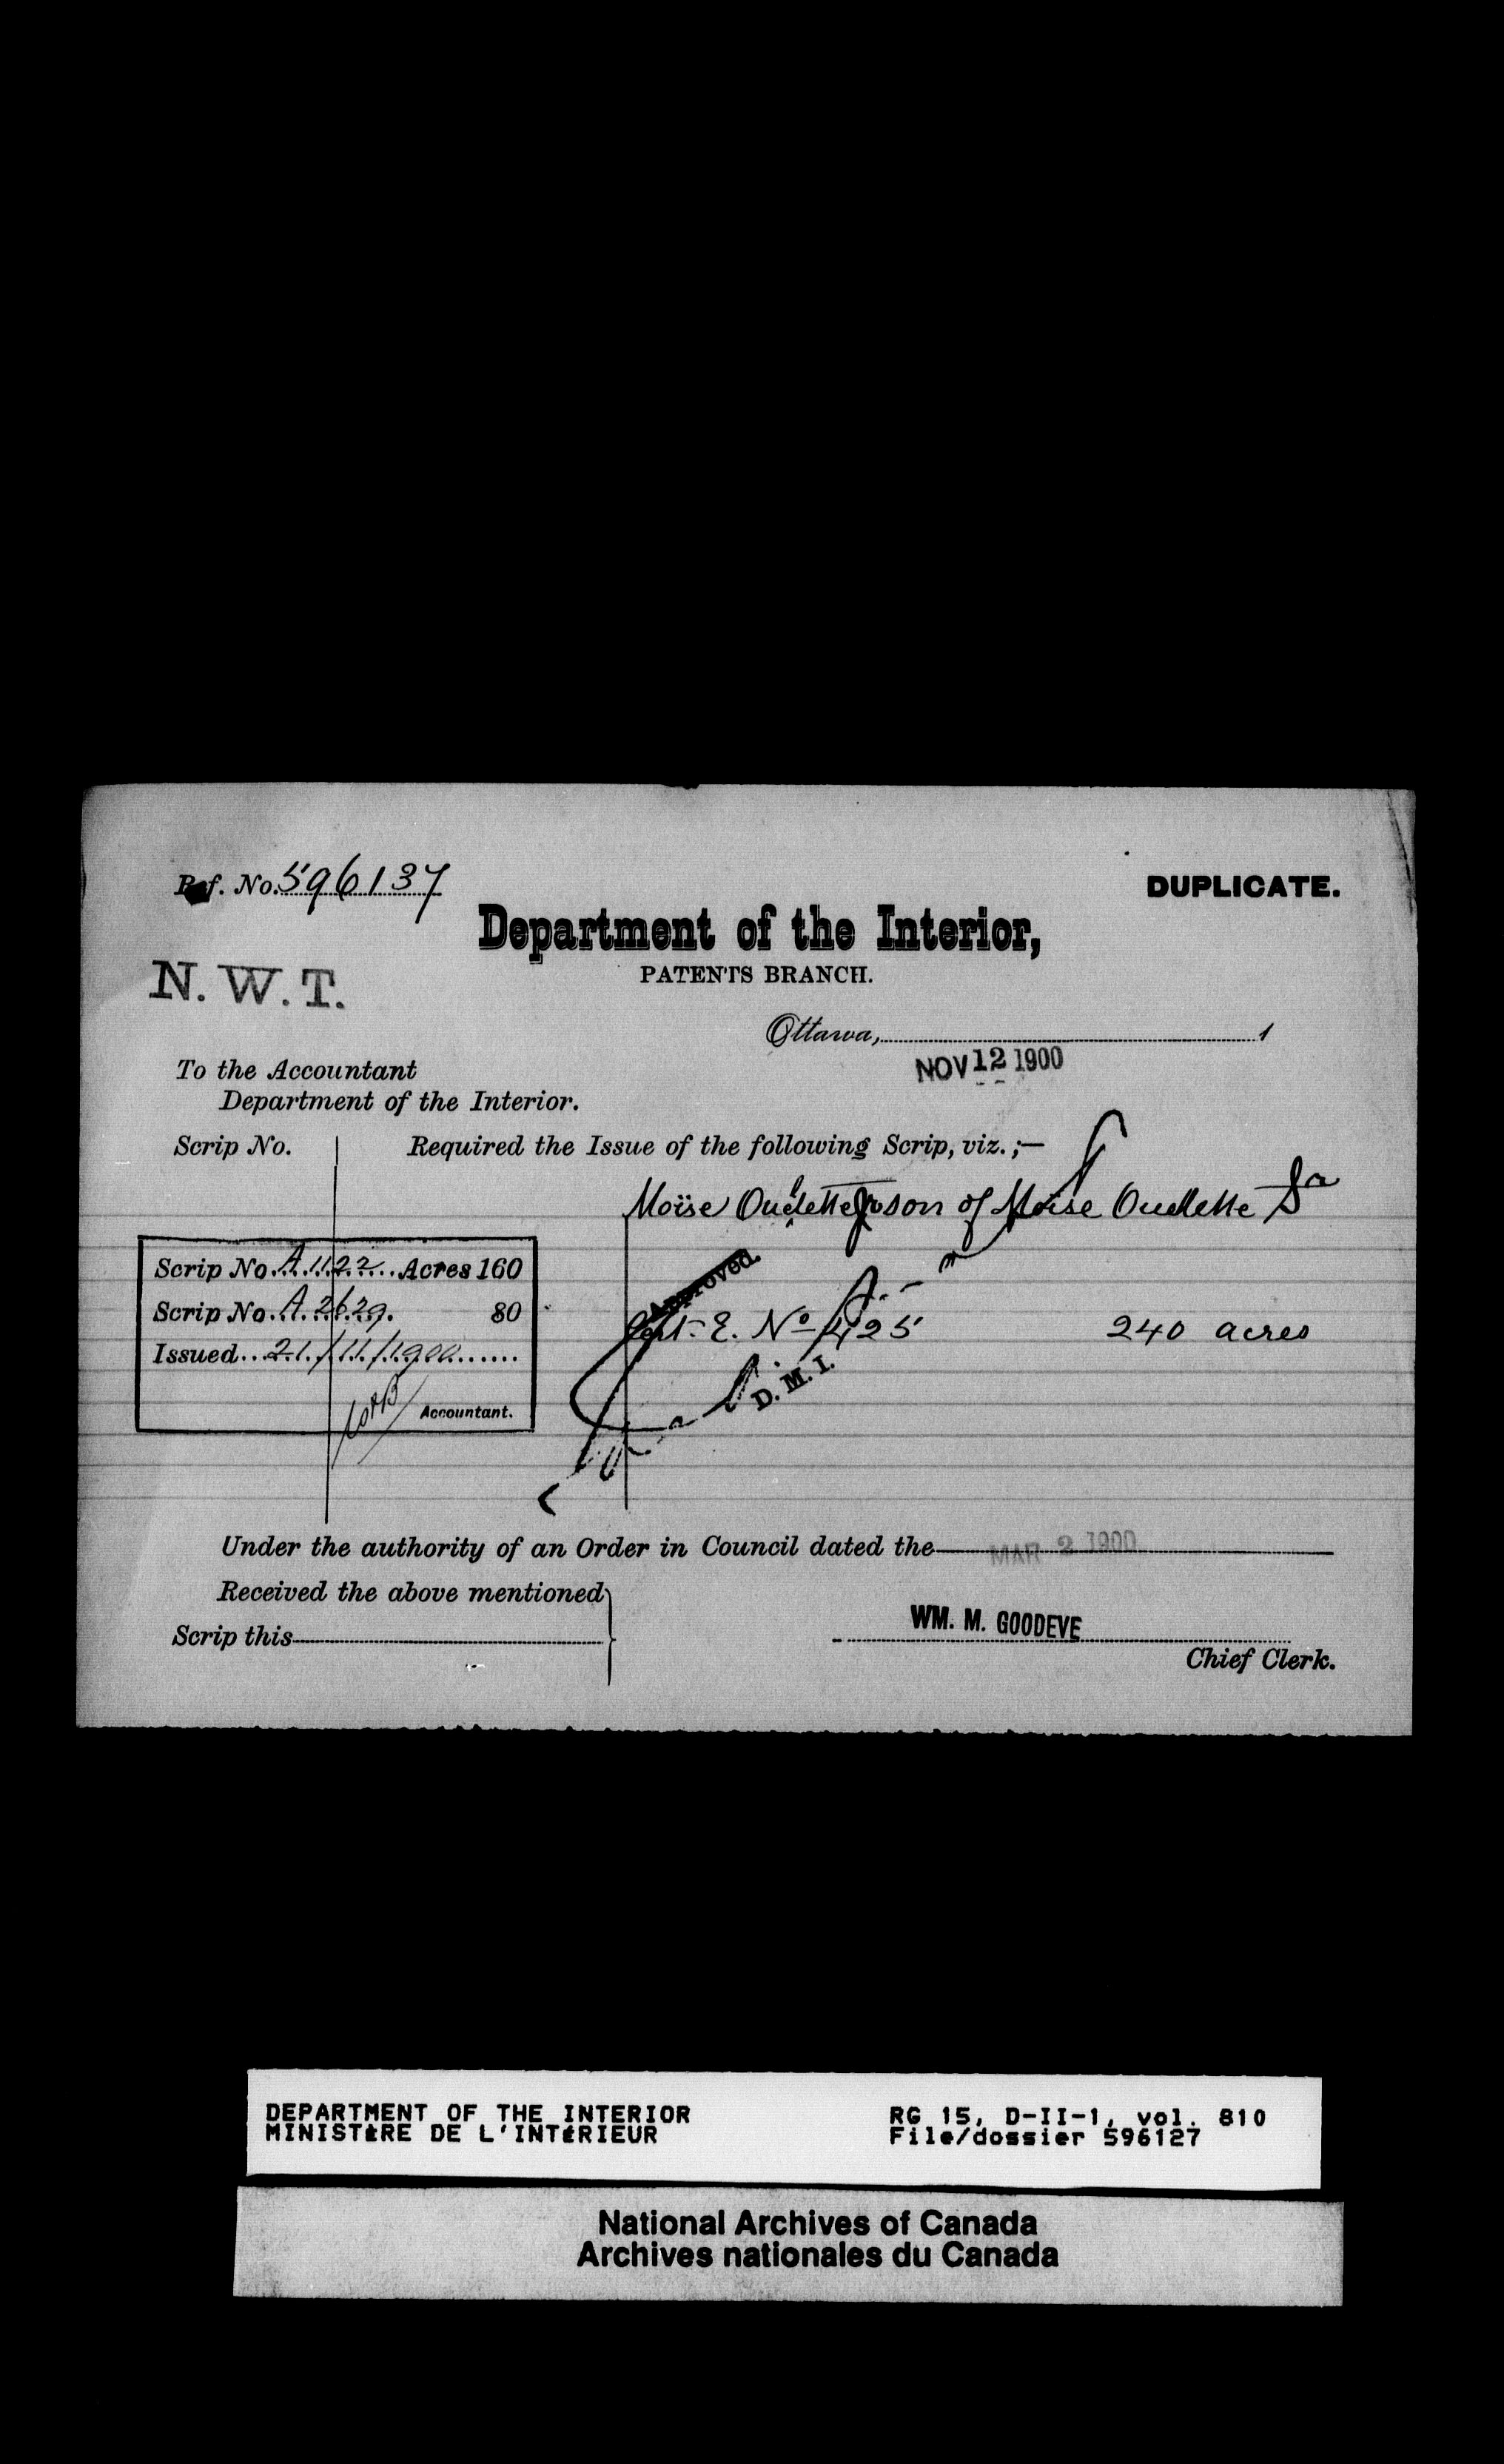 Ref. No. 596137
DUPLICATE.
Department of the Interior,
PATENTS BRANCH.
N. W. T.
Ottawa, 1
NOV 12 1900
To the Accountant
Department of the Interior.
Scrip No. Required the Issue of the following Scrip, viz.;—
Moïse Ouellette Jr son of Moïse Ouellette Sr
Approved
Scrip No. A. 1122 Acres 160
Scrip No. A. 2629. 80
Cert. E. No 425 240 acres
Issued 21/11/1900
D. M. I.
Accountant.
Under the authority of an Order in Council dated the MAR 2 1900
Received the above mentioned
Scrip this
WM. M. GOODEVE
Chief Clerk.
DEPARTMENT OF THE INTERIOR RG 15, D-II-1, vol. 810
MINISTÈRE DE L'INTÉRIEUR File/dossier 596127
National Archives of Canada
Archives nationales du Canada